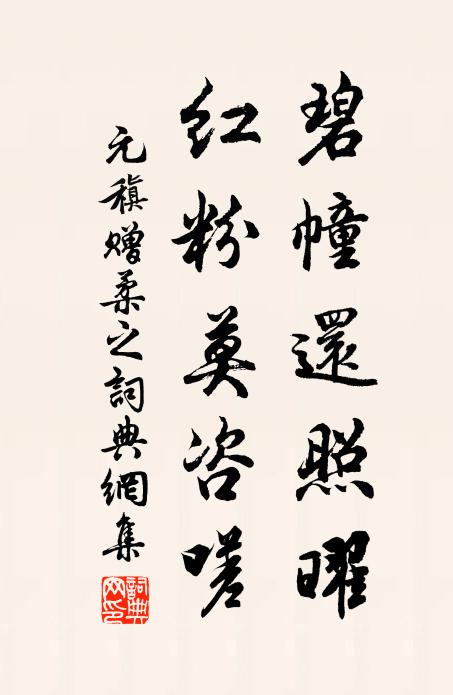 碧幢還照曜
紅粉莫咨嗟
元稹贈柔之詞典網集
詞典网印